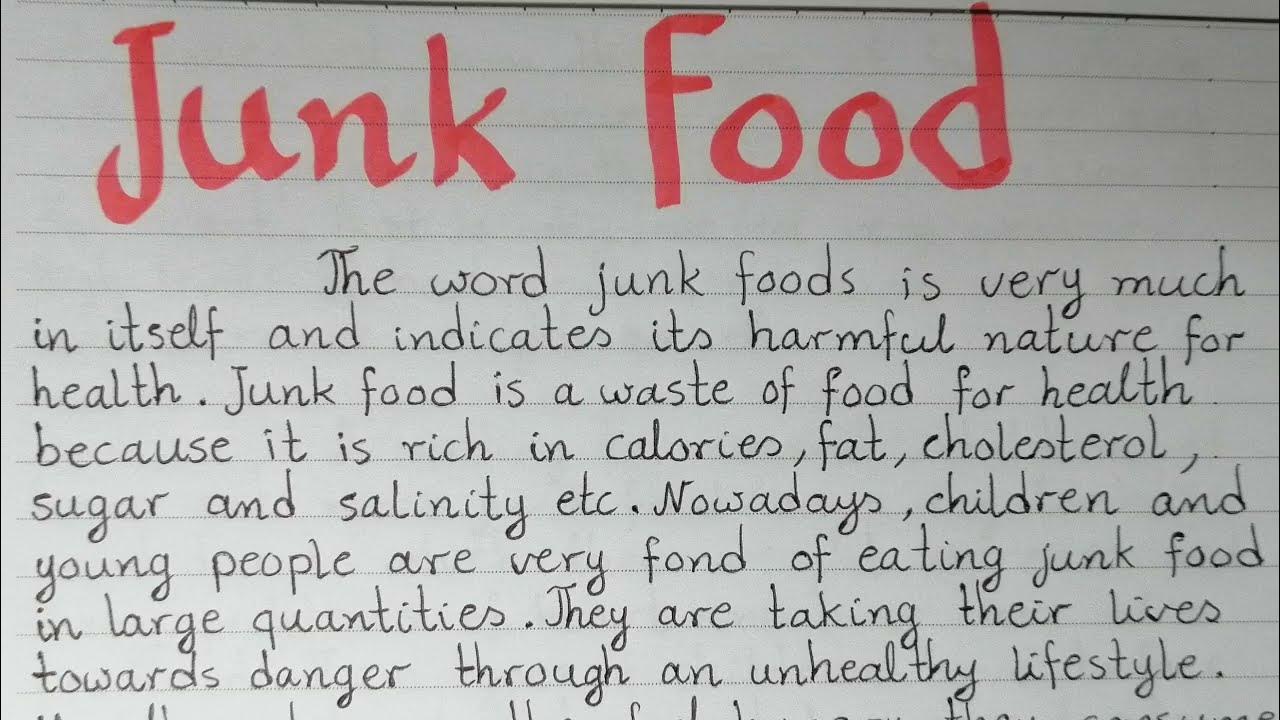 Junk Food
The word junk foods is very much
in itself and indicates its harmful nature for
health. Junk food is a waste of food for health
because it is rich in calories, fat, cholesterol,
sugar and salinity etc. Nowadays, children and
young people are very fond of eating junk food
in large quantities. They are taking their lives
towards danger through an unhealthy lifestyle.